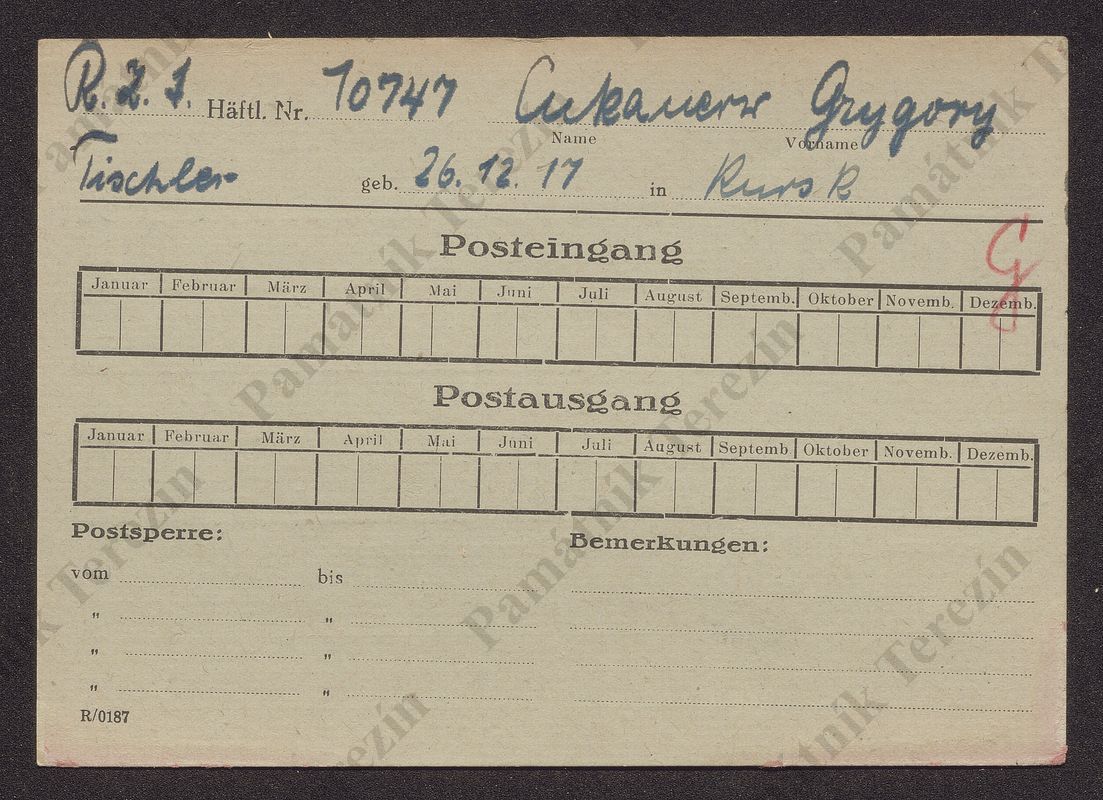 R. Z. I. Häftl. Nr. 10747 Cukanerw Grygory
Name Vorname
Tischler geb. 26. 12. 17 in Kursk
Posteingang
G
Januar Februar März April Mai Juni Juli August Septemb. Oktober Novemb. Dezemb.
Postausgang
Januar Februar März April Mai Juni Juli August Septemb Oktober Novemb. Dezemb.
Postsperre: Bemerkungen:
vom bis
" "
" "
" "
R/0187
Památník Terezín